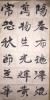 陽春布德澤
萬物生光輝
常恐秋節至